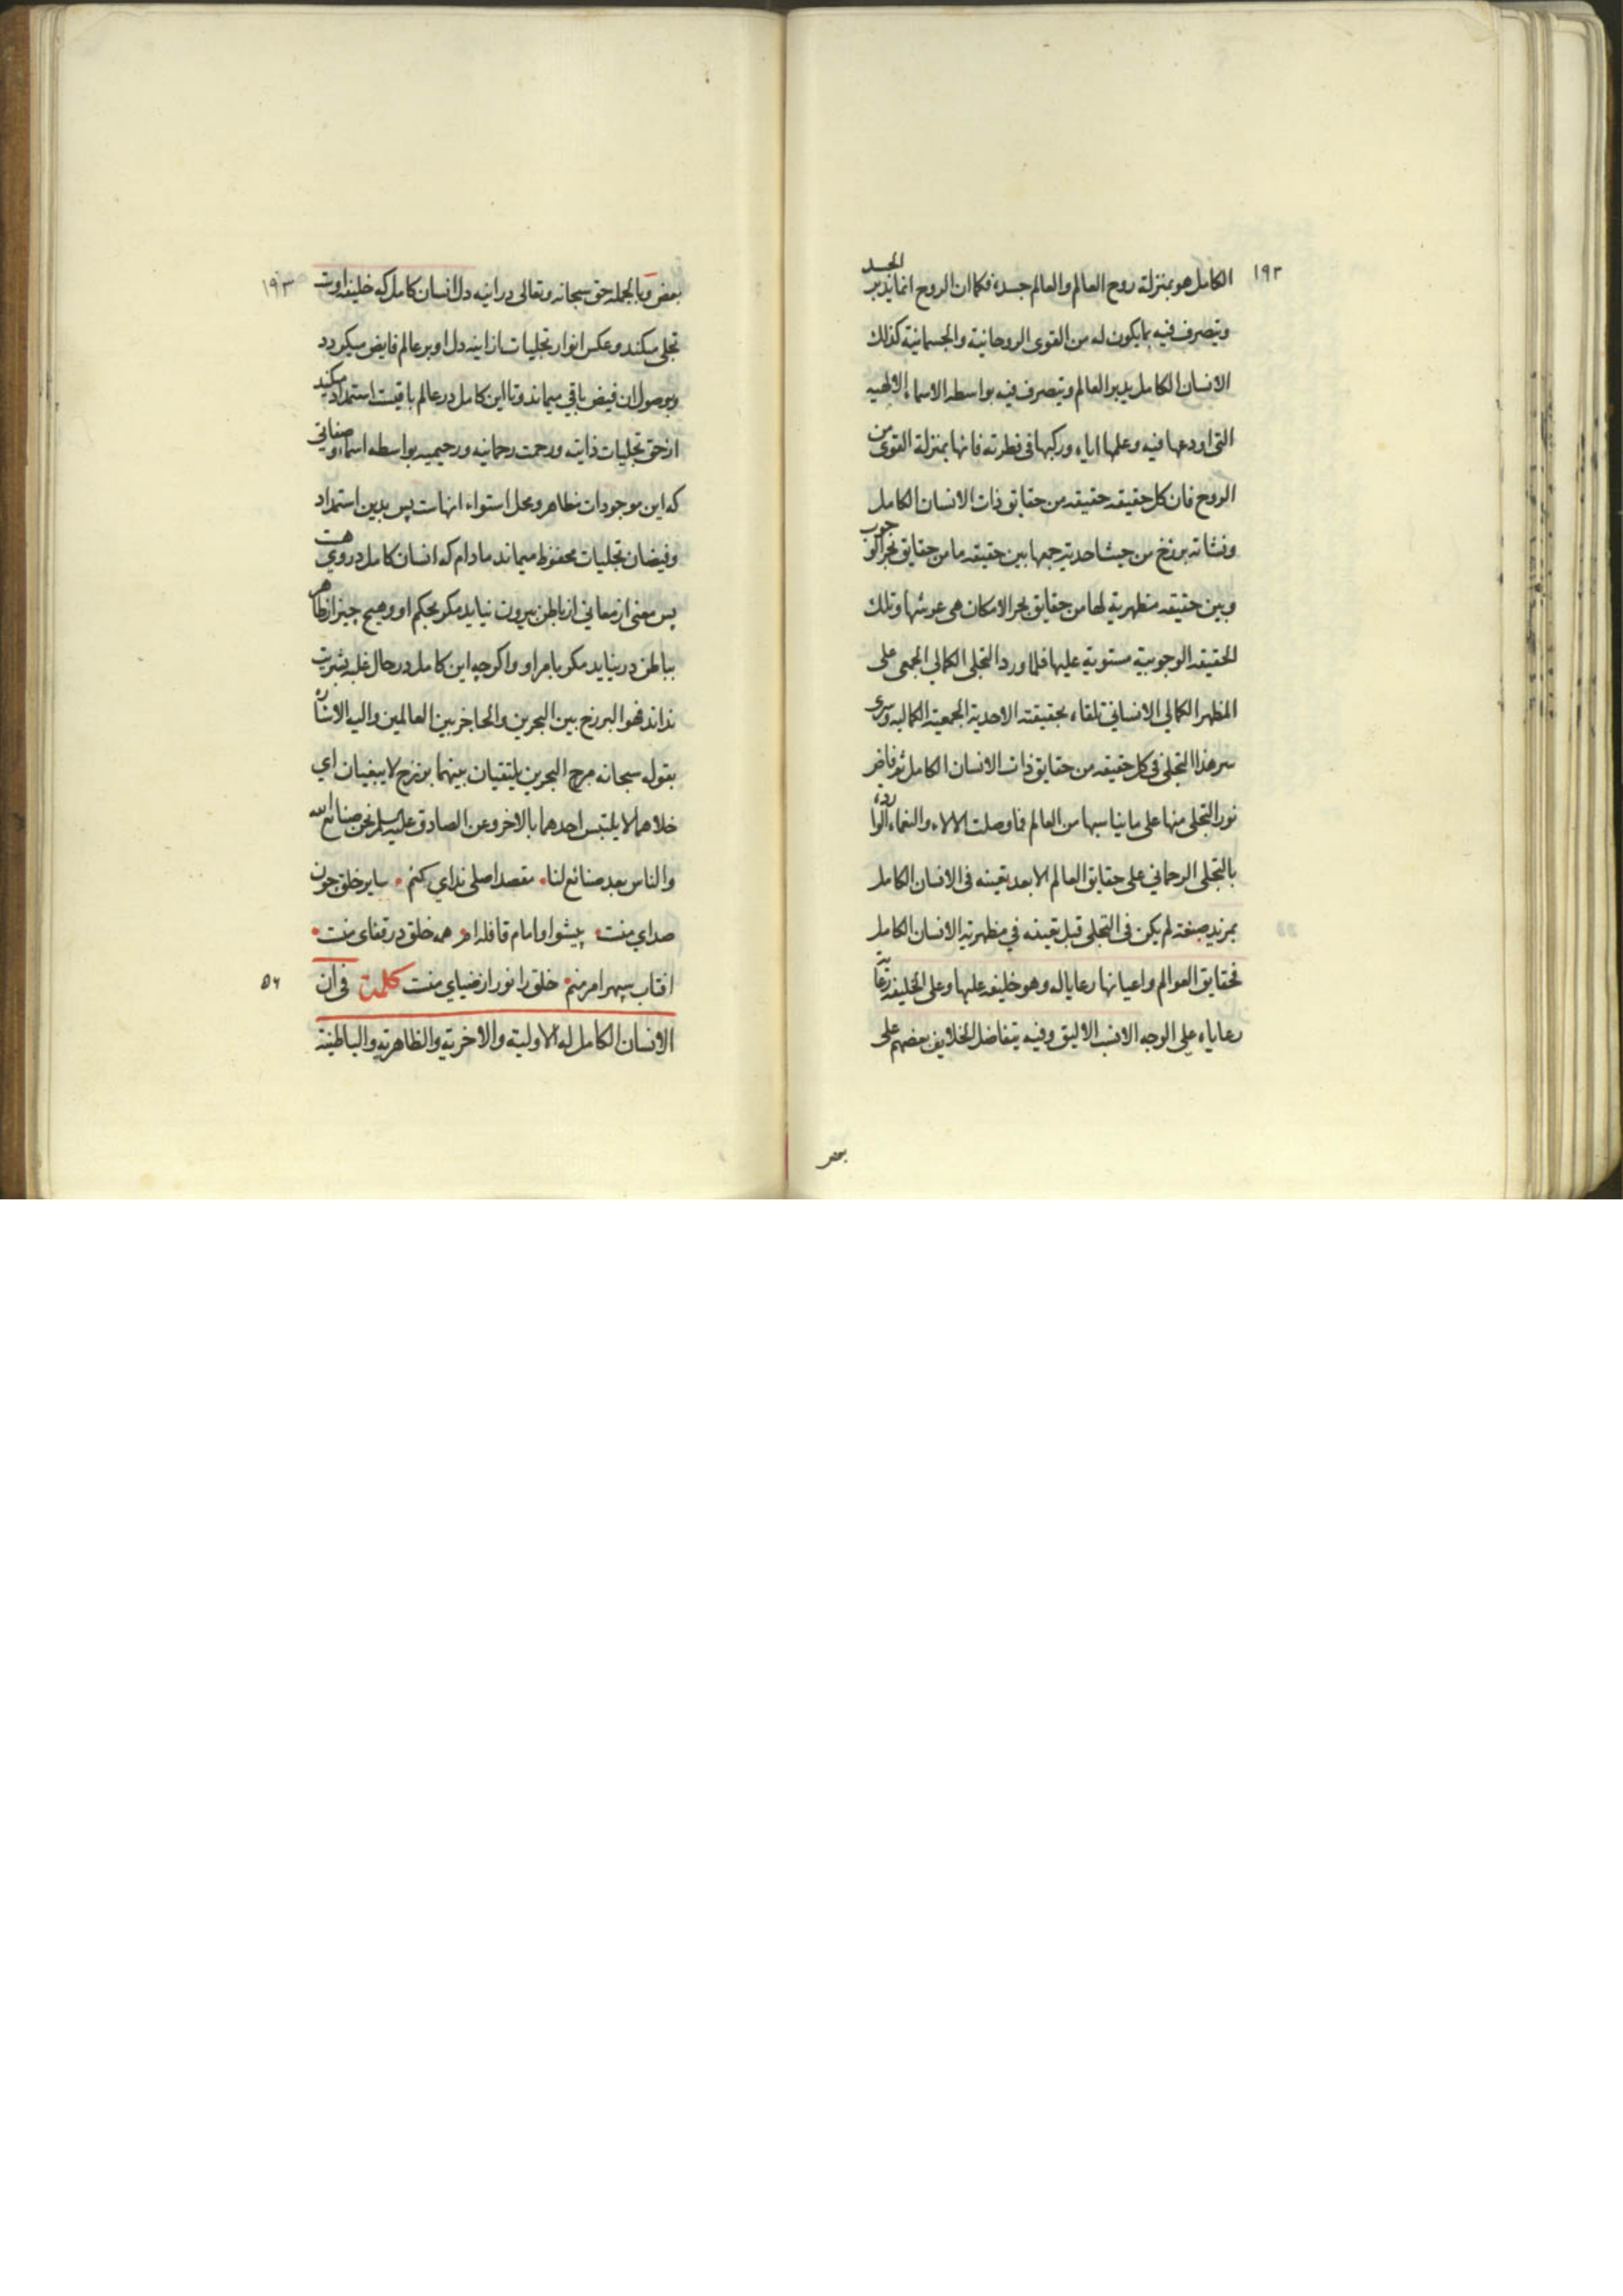 ١٩٢
الكامل هو بمنزلة روح العالم والعالم جسده فكما ان الروح انما يدبر الجسد
ويتصرف فيه بما يكون له من القوى الروحانية والجسمانية كذلك
الانسان الكامل يدبر العالم ويتصرف فيه بواسطه الاسماء الالهيه
التى اودعها فيه وعلمها اياه وركبها فى فطرته فانها بمنزلة القوى من
الروح فان كل حقيقه حقيقه من حقايق ذات الانسان الكامل
ونشاته برزخ من حيث احديته جمعها بين حقيقه ما من حقايق بحر الوجوب
وبين حقيقه مظهرية لها من حقايق بحر الامكان هى عرشها وتلك
الحقيقه الوجوبية مستوية عليها فلما ورد التجلى الكمالي الجمعى على
المظهر الكمالي الانسانى تلقاه بحقيقته الاحدية الجمعية الكماليه وسرى
سر هذا التجلى فى كل حقيقه من حقايق ذات الانسان الكامل ثم فاض
نور التجلى منها على ما يناسبها من العالم فما وصلت الالاء والنعماء الواردة
بالتجلى الرحماني على حقايق العالم الا بعد تعينه فى الانسان الكامل
بمزيد صبغة لم يكن فى التجلى قبل تعينه في مظهرية الانسان الكامل
فحقايق العوالم واعيانها رعايا له وهو خليفه عليها وعلى الخليفه رعاية
رعاياه على الوجه الانسب الاليق وفيه يتفاضل الخلايف بعضهم على
بعض
١٩٣
بعض وبالجمله حق سبحانه وتعالى در اينه دل انسان كامل كه خليفه اوست
تجلى ميكند وعكس انوار تجليات از اينه دل او بر عالم فايض ميكردد
وبوصول ان فيض باقي ميماند وتا اين كامل در عالم باقيست استمداد ميكند
از حق تجليات ذاتيه ورحمت رحمانيه ورحيميه بواسطه اسماء وصفاتى
كه اين موجودات مظاهر ومحل استواء انهاست پس بدين استمداد
وفيضان تجليات محفوظ ميماند مادام كه انسان كامل در وي هست
پس معنى از معاني از باطن بيرون نيايد مكر بحكم او وهيچ چيز از ظاهر
بباطن در نيايد مكر بامر او واكرچه اين كامل در حال غلبه بشريت
نداند فهو البرزخ بين البحرين والحاجز بين العالمين واليه الاشاره
بقوله سبحانه مرج البحرين يلتقيان بينهما برزخ لا يبغيان اي
خلاهما لا يلتبس احدهما بالاخر وعن الصادق عليه السلم نحن صنائع الله
والناس بعد صنائع لنا مقصد اصلى نداي كنم ساير خلق چون
صداي منست پيشوا وامام قافله ام همه خلق در قفاى منست
افتاب سپهر امر منم خلق را نور از ضياي منست كلمة فى ان
٥٦
الانسان الكامل له الاولية والاخرية والظاهرية والباطنية